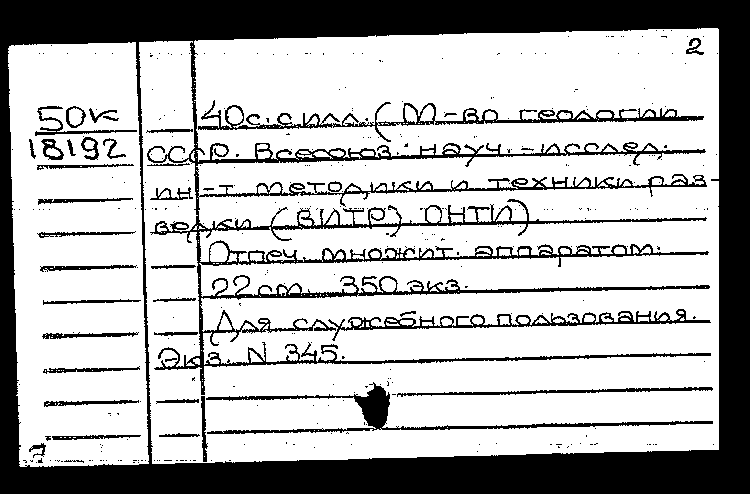 2
50К 40с. с илл. (М-во геологии
18192 СССР. Всесоюз. науч.-исслед.
ин-т методики и техники раз-
ведки (ВИТР). ОНТИ).
Отпеч. множит. аппаратом.
22 см. 350 экз.
Для служебного пользования.
Экз. N 345.
7